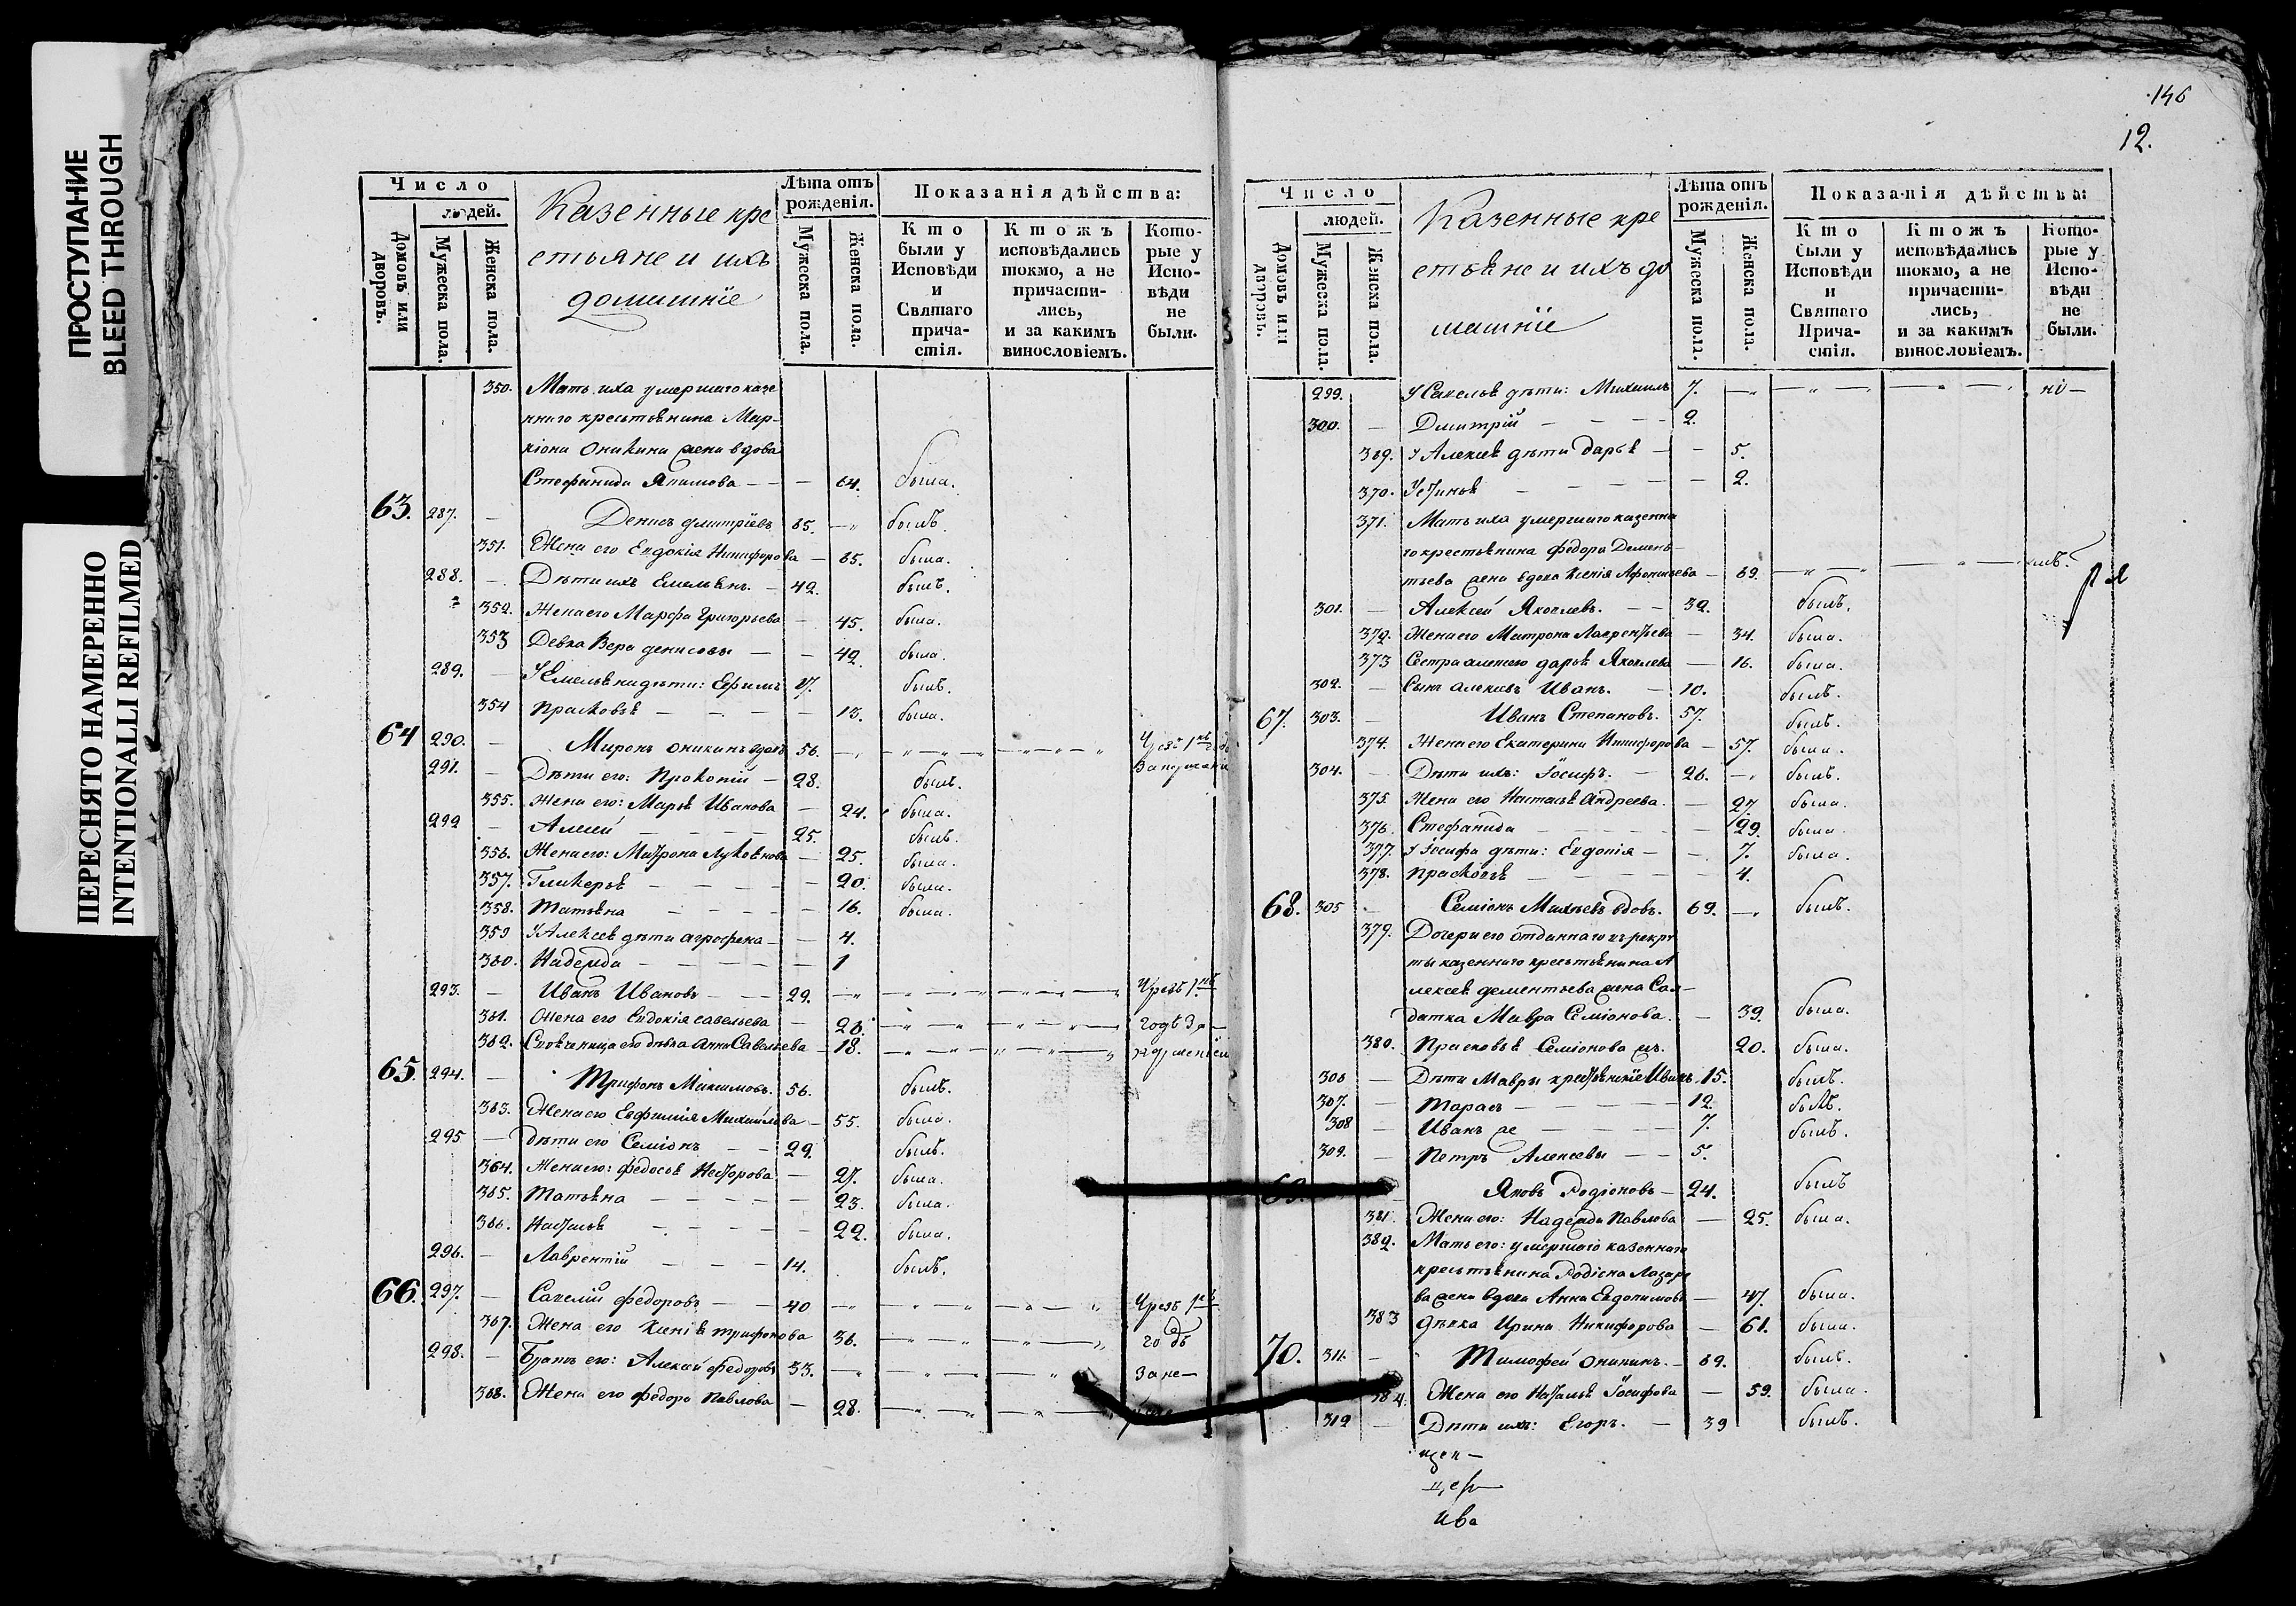 ПРОСТУПАНИЕ
BLEED THROUGH
ПЕРЕСНЯТО НАМЕРЕННО
INTENTIONALLI REFILMED
Число
людей.
Домовъ или дворовъ.
Мужеска пола.
Женска пола.
Казенные кре
стьяне и ихъ
домашнiе
Лѣта отъ рожденiя.
Мужеска пола.
Женска пола.
Показанiя дѣйства:
Кто были у Исповѣди и Святаго прича-стiя.
Ктожъ исповѣдались токмо, а не причасти-лись, и за какимъ винословiемъ.
Кото-рые у Испо-вѣди не были.
350. Мать ихъ умершаго казе
ннаго крестьянина Мар-
кiона Оникина жена вдова
Стефанида Якимова — — — 64. была.
63. 287. — Денисъ Дмитрiевъ 65. — былъ.
351. Жена его Евдокiя Никифорова — 65. была.
288. — Дѣти ихъ Емельянъ. — 42. былъ.
352. Жена его Марфа Григорьева — 45. была.
353 Девка Вера Денисова — — 42. была.
289. — У Емельяна дѣти: Ефимъ 17. былъ.
354 Прасковья — — — — 13. была.
64 290. — Миронъ Оникинъ вдовъ 56.
291. — Дѣти его: Прокопiй — 28. былъ.
355. Жена его: Марья Иванова — 24. была.
292 — Алексѣй — — — 25. былъ.
356. Жена его: Матрона Лукоянова — 25. была.
357. Гликерья — — — — 20. была.
358. Татьяна — — — — 16. была.
359 У Алексея дѣти Агрофена — — 4.
360. Надежда — — — — 1
293. — Иванъ Ивановъ — — 29. Чрезъ 1
361. Жена его Евдокiя Савельева — 26. годъ За
362. Своячница его дѣвка Анна Савельева — 18.
65. 294. — Трифонъ Максимовъ. 56. былъ.
363. Жена его Евфимiя Михайлова — 55. была.
295 — Дѣти его Семiонъ — — 29. былъ.
364. Жена его: Федосья Несторова — 27. была.
365. Татьяна — — — — 23. была.
366. Наталья — — — — 22. была.
296. — Лаврентiй — — — 14. былъ.
66. 297. — Савелiй Федоровъ — — 40 Чрезъ 1
367. Жена его Ксенiя Трифонова 36. годъ
298. — Братъ его: Алексѣй Федоровъ 33. За не—
368. Жена его Федора Павлова — 28.
146
12.
Число
людей.
Домовъ или дворовъ.
Мужеска пола.
Женска пола.
Казенные кре
стьяне и ихъ до
машнiе
Лѣта отъ рожденiя.
Мужеска пола.
Женска пола.
Показанiя дѣйства:
Кто были у Исповѣди и Святаго Прича-стiя.
Ктожъ исповѣдались токмо, а не причасти-лись, и за какимъ винословiемъ.
Кото-рые у Испо-вѣди не были.
299. У Савелья дѣти: Михаилъ 7.
300. — Дмитрiй — — — 2.
369. У Алексѣя дѣти Дарья — — 5.
370. Устинья — — — — 2.
371. Мать ихъ умершаго казенна
го крестьянина Федора Демень-
тьева жена вдова Ксенiя Афонасьева — 69.
301. — Алексѣй Яковлевъ. — — 32. былъ.
372. Жена его Матрона Лаврентьева — 34. была.
373 Сестра Алексѣю Дарья Яковлева — 16. была.
302. — Сынъ Алексѣевъ Иванъ. — 10. былъ.
67. 303. — Иванъ Степановъ. 57. былъ.
374. Жена его Екатерина Никифорова — 57. была.
304. — Дѣти ихъ: Iосифъ. — 26. — былъ.
375. Жена его Настасья Андреева. — 27 была.
376. Стефанида — — — — 29. была.
377. У Iосифа дѣти: Евдокiя — — 7. была.
378. Прасковья — — — — 4.
68. 305 — Семiонъ Михѣевъ вдовъ. 69. — былъ.
379. Дочери его отданнаго въ рекру
ты казеннаго крестьянина А
лексѣя Дементьева жена Сол—
датка Мавра Семiонова. — 39. была.
380. Прасковья Семiонова 20. была.
306 — Дѣти Мавры крестьянскiе Иванъ. 15. былъ.
307. — Тарасъ — — — — 12. былъ.
308 — Иванъ же — — — 7. былъ.
309. — Петръ Алексеевы — — 5.
69. — Яковъ Родiоновъ — 24. былъ
381. Жена его: Надежда Павлова — 25. была.
382. Мать его: умершаго казеннаго
крестьянина Родiона Лазаре
ва жена вдова Анна Евдокимова — 47. была.
383 Дѣвка Ирина Никифорова — 61. была.
70. 311. — Тимофей Оникинъ. — 69. былъ.
384. Жена его Наталья Iосифова — 59. была.
312 — Дѣти ихъ: Егоръ. — 39 былъ.
Ива